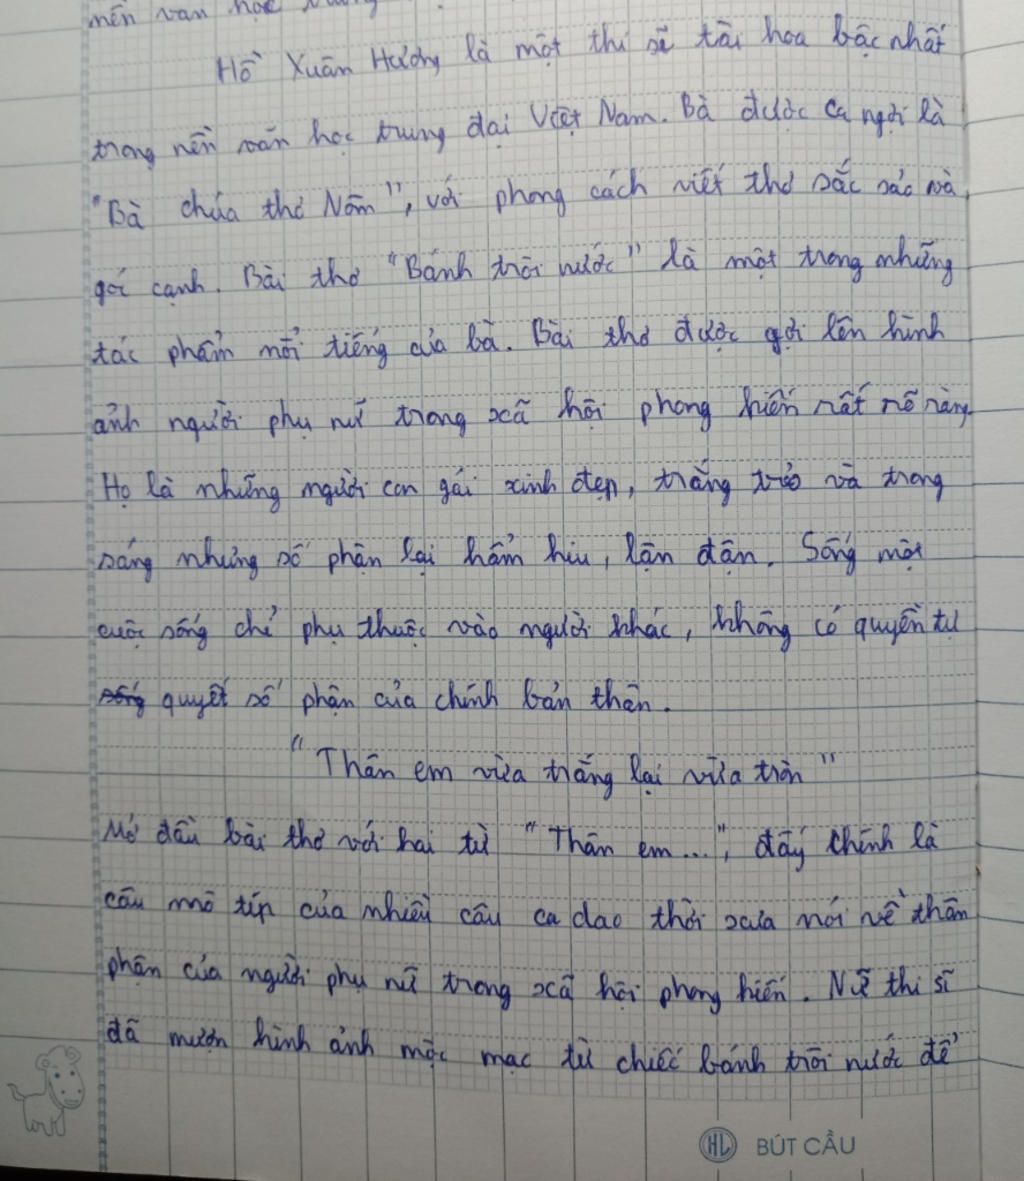 mến văn học
Hồ Xuân Hương là một thi sĩ tài hoa bậc nhất
trong nền văn học trung đại Việt Nam. Bà được ca ngợi là
"Bà chúa thơ Nôm", với phong cách viết thơ sắc sảo và
gói cạnh. Bài thơ "Bánh trôi nước" là một trong những
tác phẩm nổi tiếng của bà. Bài thơ được gợi lên hình
ảnh người phụ nữ trong xã hội phong kiến rất rõ ràng.
Họ là những người con gái xinh đẹp, trắng trẻo và trong
sáng nhưng số phận lại hẩm hiu, lận đận. Sống một
cuộc sống chỉ phụ thuộc vào người khác, không có quyền tự
sống quyết số phận của chính bản thân.
"Thân em vừa trắng lại vừa tròn"
Mở đầu bài thơ với hai từ "Thân em...", đấy chính là
câu mô típ của nhiều câu ca dao thời xưa nói về thân
phận của người phụ nữ trong xã hội phong kiến. Nữ thi sĩ
đã mượn hình ảnh mộc mạc từ chiếc bánh trôi nước để
HL BÚT CẦU